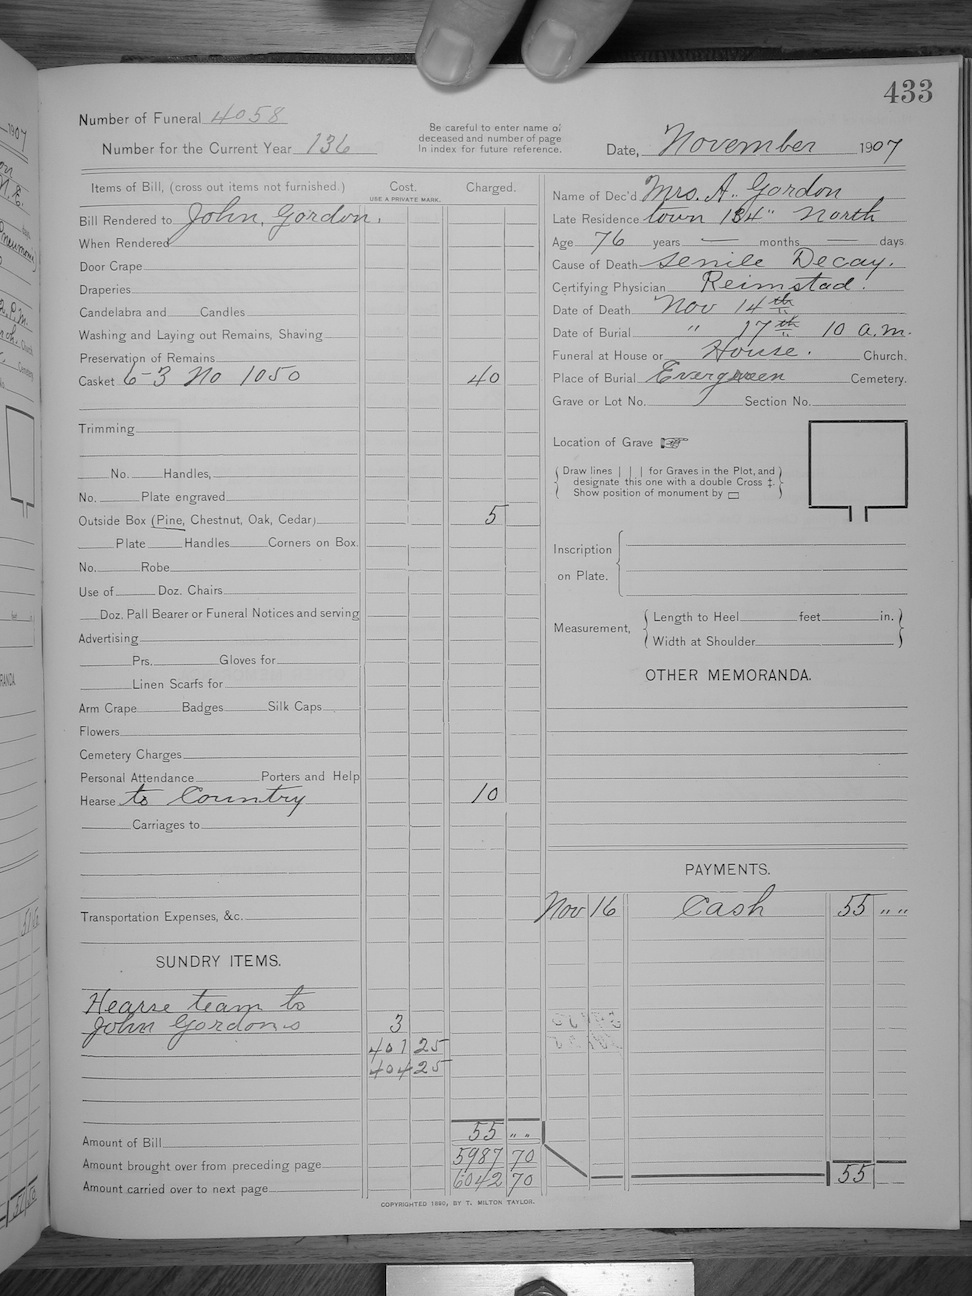 433
Number of Funeral 4058
Number for the Current Year 136
Be careful to enter name of
deceased and number of page
In index for future reference.
Date, November 1907
Items of Bill, (cross out items not furnished.) Cost. Charged.
USE A PRIVATE MARK.
Bill Rendered to John, Gordon.
When Rendered
Door Crape
Draperies
Candelabra and Candles
Washing and Laying out Remains, Shaving
Preservation of Remains
Casket 6-3 No 1050 40
Trimming
No. Handles,
No. Plate engraved
Outside Box (Pine, Chestnut, Oak, Cedar) 5
Plate Handles Corners on Box.
No. Robe
Use of Doz. Chairs
Doz. Pall Bearer or Funeral Notices and serving
Advertising
Prs. Gloves for
Linen Scarfs for
Arm Crape Badges Silk Caps
Flowers
Cemetery Charges
Personal Attendance Porters and Help
Hearse to Country 10
Carriages to
Transportation Expenses, &c.
SUNDRY ITEMS.
Hearse team to
John Gordons 3
401 25
404 25
Amount of Bill 55 " "
Amount brought over from preceding page 5987 70
Amount carried over to next page 6042 70
Name of Dec'd Mrs. A. Gordon
Late Residence town 134" North
Age 76 years — months — days
Cause of Death Senile Decay.
Certifying Physician Reimstad.
Date of Death Nov 14th
Date of Burial " 17th 10 a.m.
Funeral at House or House. Church.
Place of Burial Evergreen Cemetery.
Grave or Lot No. Section No.
Location of Grave
Draw lines | | | for Graves in the Plot, and
designate this one with a double Cross ‡.
Show position of monument by
Inscription
on Plate.
Measurement, Length to Heel feet in.
Width at Shoulder
OTHER MEMORANDA.
PAYMENTS.
Nov 16 Cash 55 " "
55
COPYRIGHTED 1890, BY T. MILTON TAYLOR.